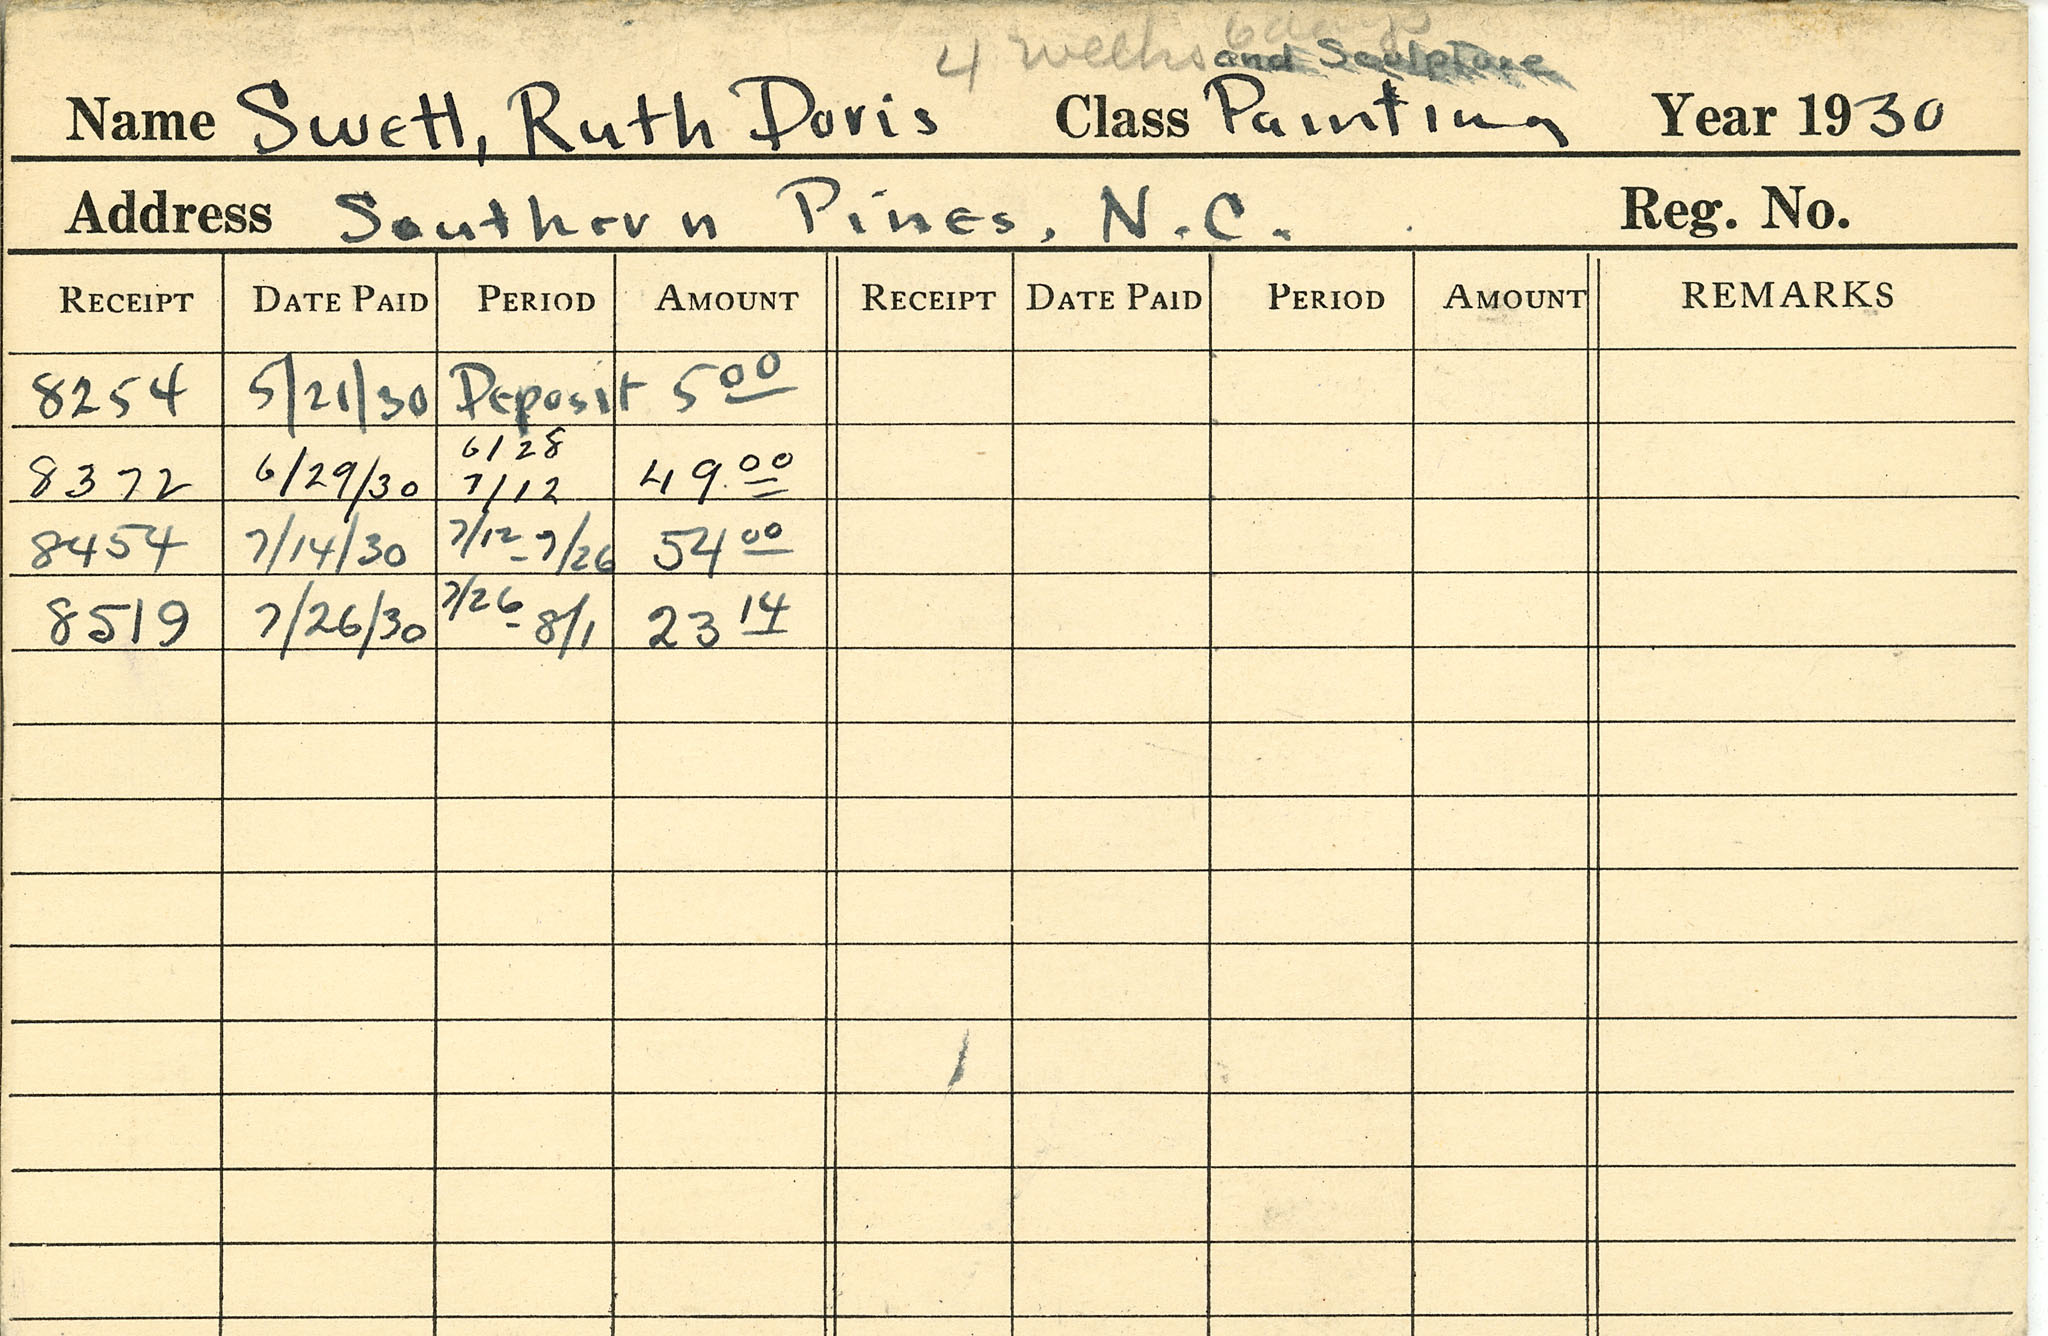 4 weeks 6 days
and Sculpture
Name Swett, Ruth Doris Class Painting Year 1930
Address Southern Pines, N.C. Reg. No.
RECEIPT DATE PAID PERIOD AMOUNT RECEIPT DATE PAID PERIOD AMOUNT REMARKS
8254 5/21/30 Deposit 5 00
8372 6/29/30 6/28 7/12 49.00
8454 7/14/30 7/12 - 7/26 54 00
8519 7/26/30 7/26 - 8/1 23 14